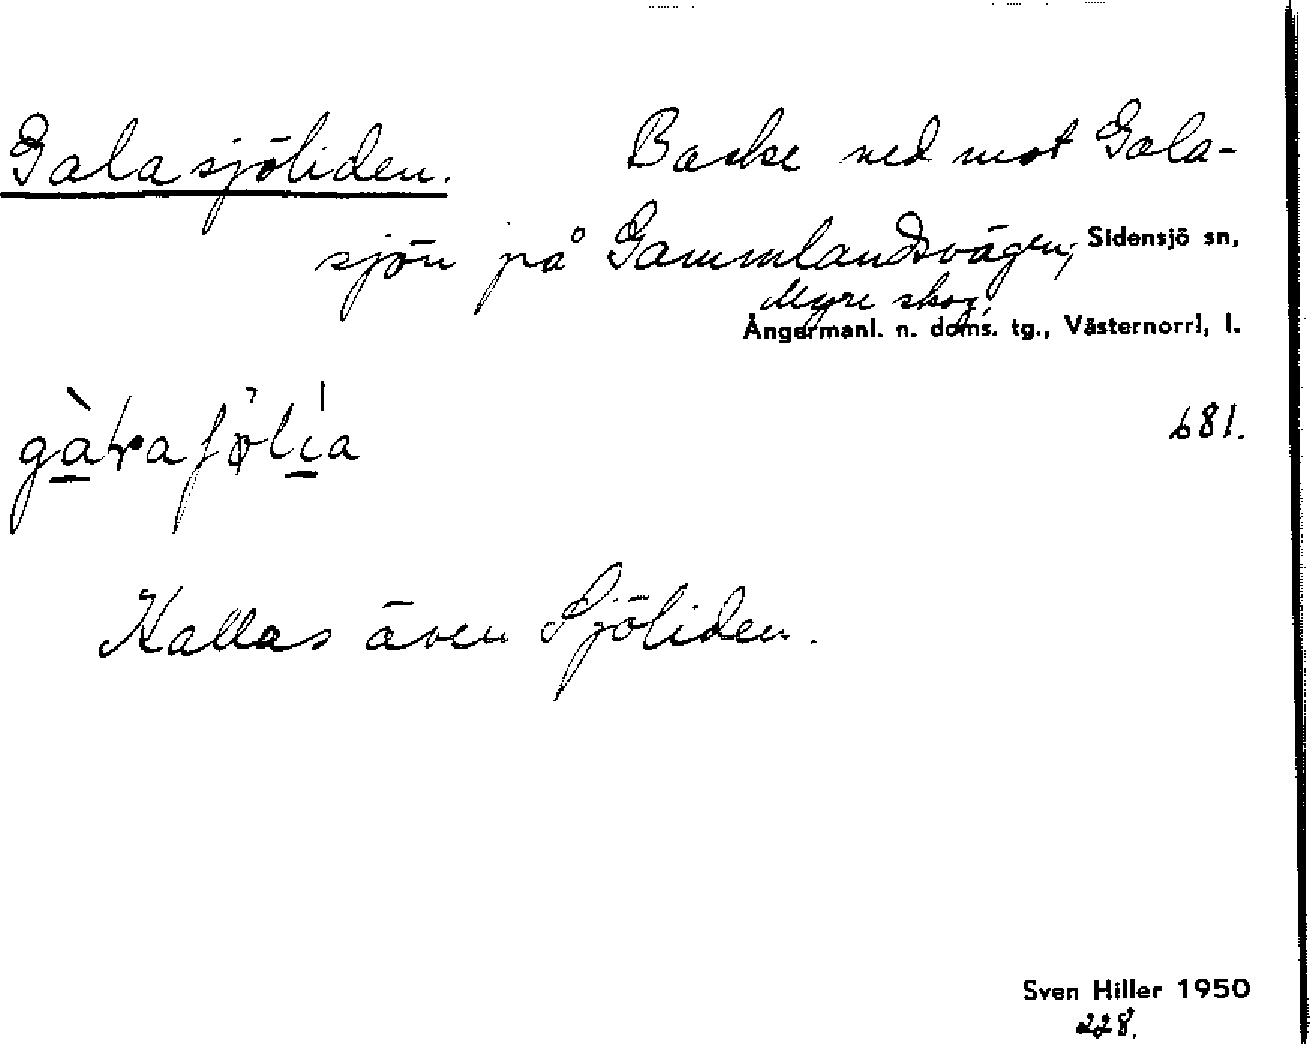 Galasjöliden. Backe ned mot Gala-
sjön på Gammlandsvägen, Sidensjö sn,
Myre skog,
Ångermanl. n. doms. tg., Västernorrl, l.
681.
Kallas även Sjöliden.
Sven Hiller 1950
228.